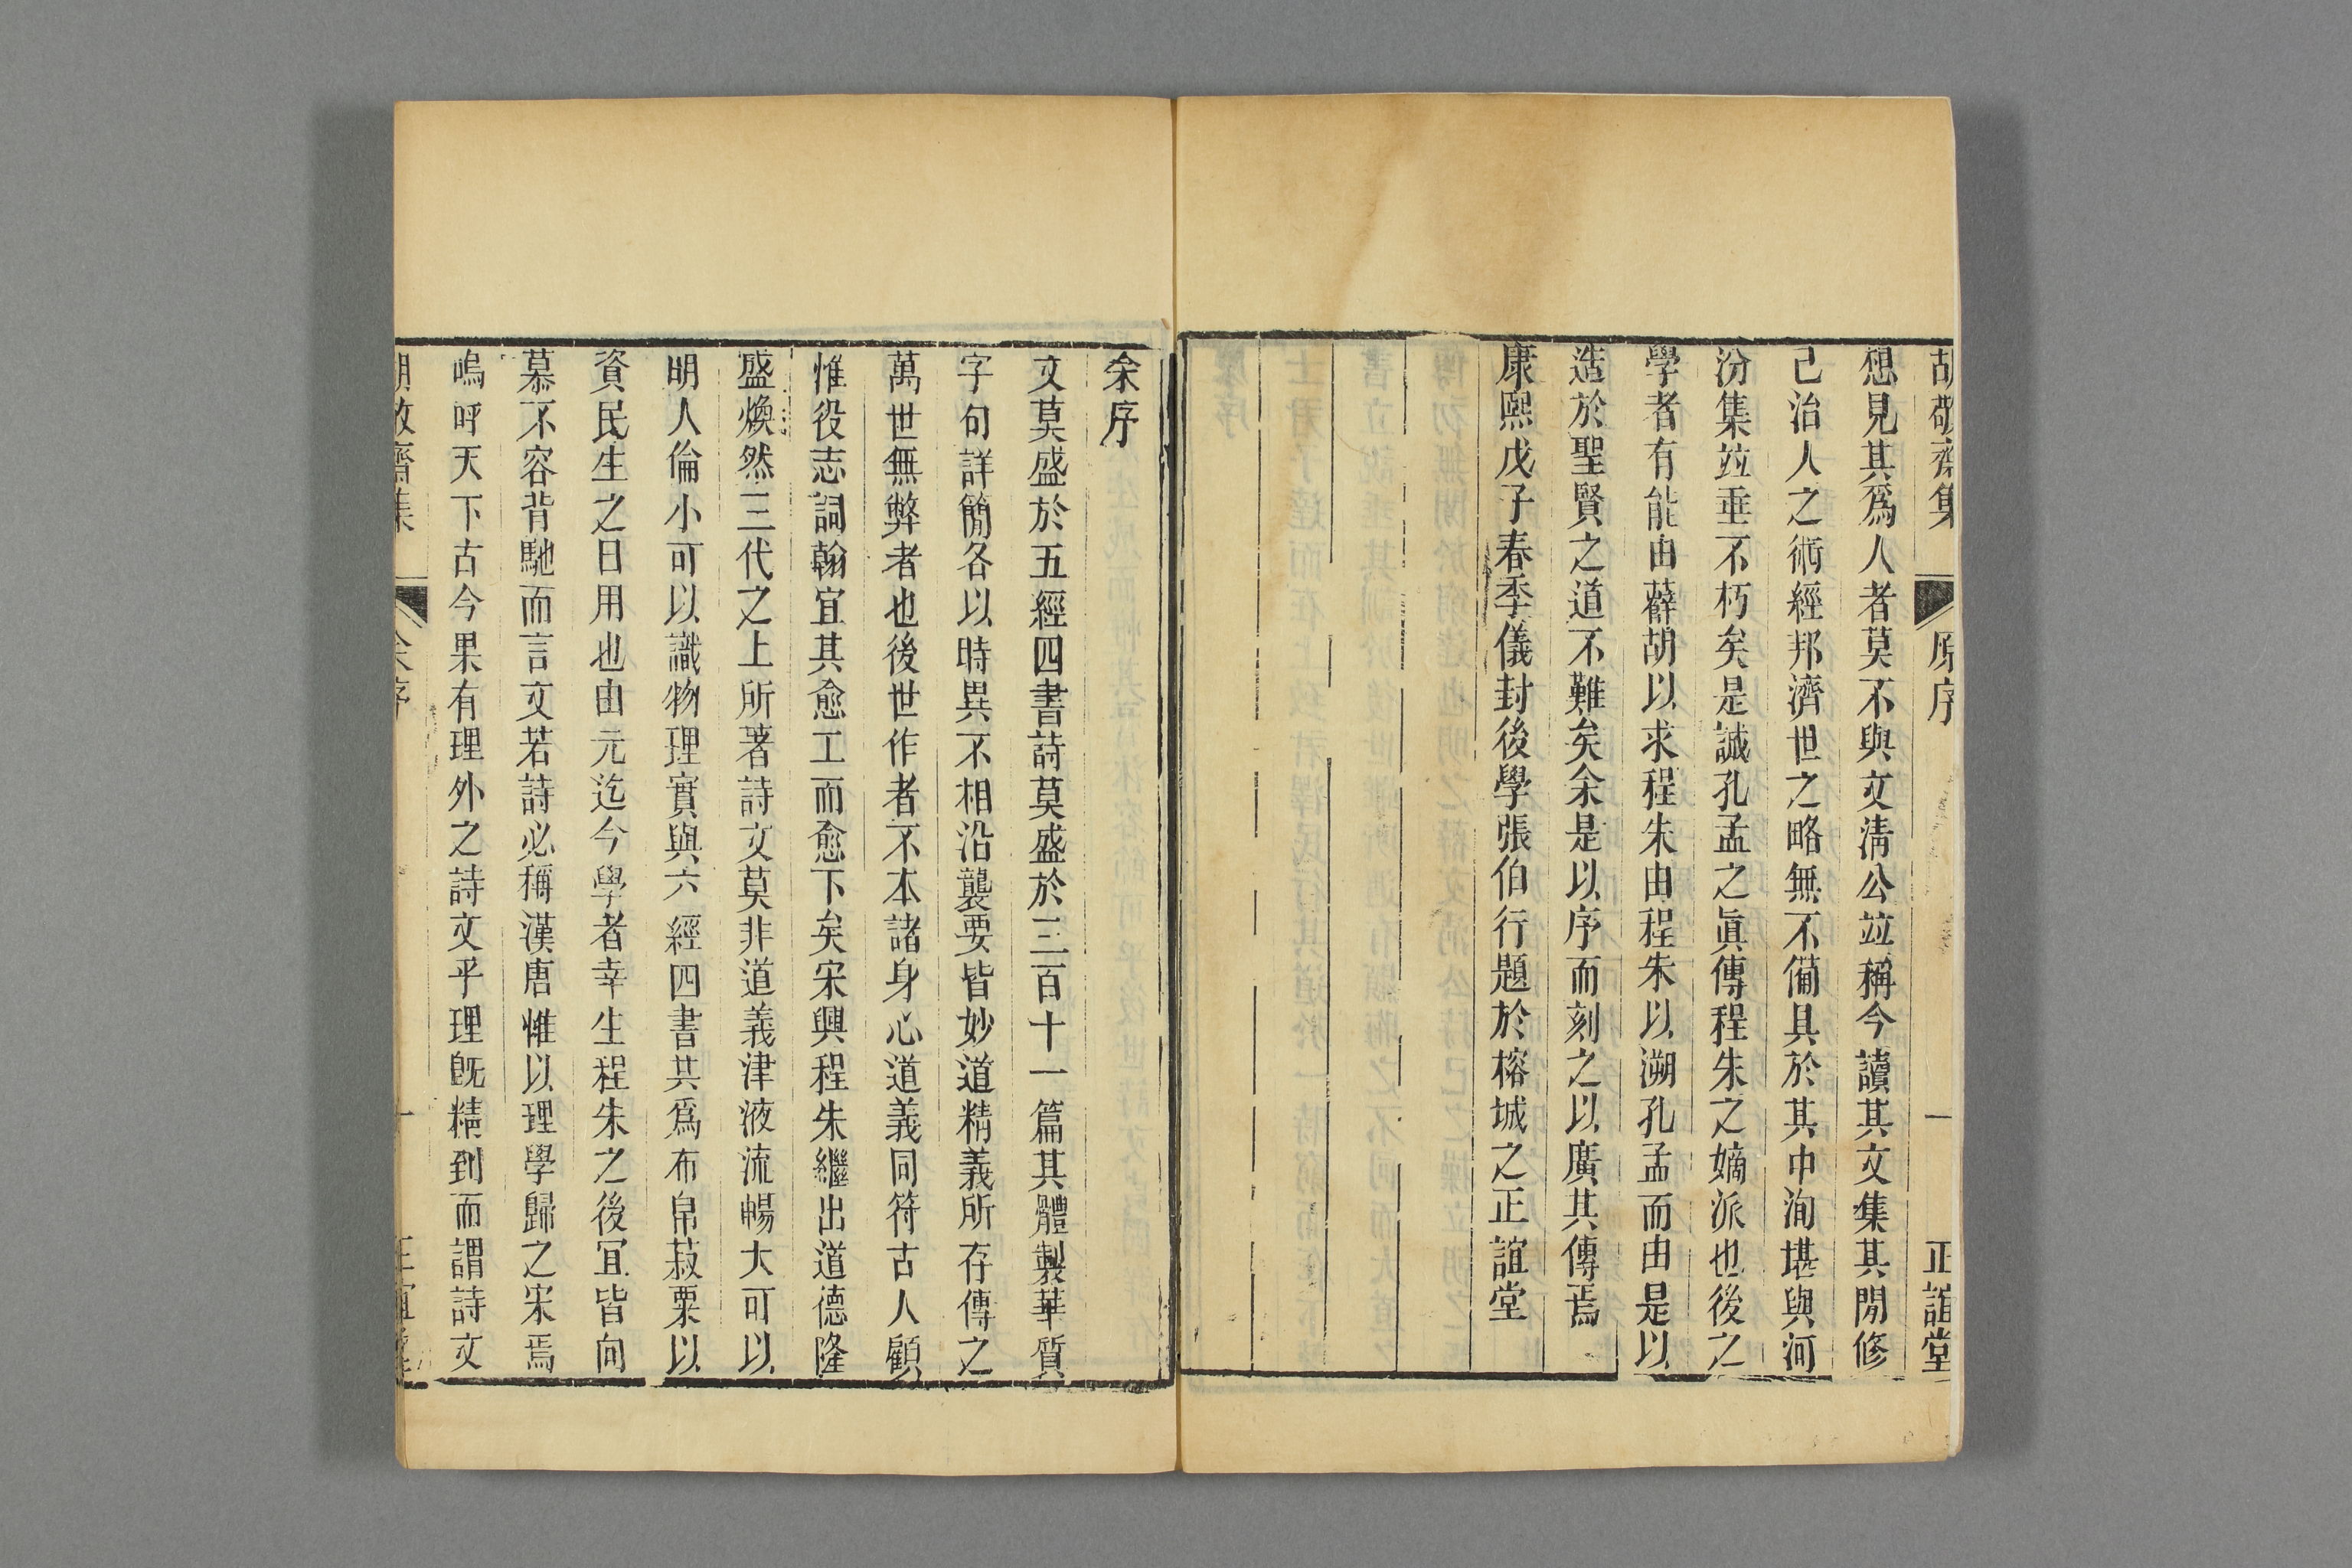 胡敬齋集 原序 一 正誼堂
想見其爲人者莫不與文淸公竝稱今讀其文集其閒修
己治人之術經邦濟世之略無不備具於其中洵堪與河
汾集竝垂不朽矣是誠孔孟之眞傳程朱之嫡派也後之
學者有能由薛胡以求程朱由程朱以溯孔孟而由是以
造於聖賢之道不難矣余是以序而刻之以廣其傳焉
康熙戊子春季儀封後學張伯行題於榕城之正誼堂
余序
文莫盛於五經四書詩莫盛於三百十一篇其體製華質
字句詳簡各以時異不相沿襲要皆妙道精義所存傳之
萬世無弊者也後世作者不本諸身心道義同符古人顧
惟役志詞翰宜其愈工而愈下矣宋興程朱繼出道德隆
盛煥然三代之上所著詩文莫非道義津液流暢大可以
明人倫小可以識物理實與六經四書其爲布帛菽粟以
資民生之日用也由元迄今學者幸生程朱之後宜皆向
慕不容背馳而言文若詩必稱漢唐惟以理學歸之宋焉
嗚呼天下古今果有理外之詩文乎理旣精到而謂詩文
胡敬齋集 余序 一 正誼堂